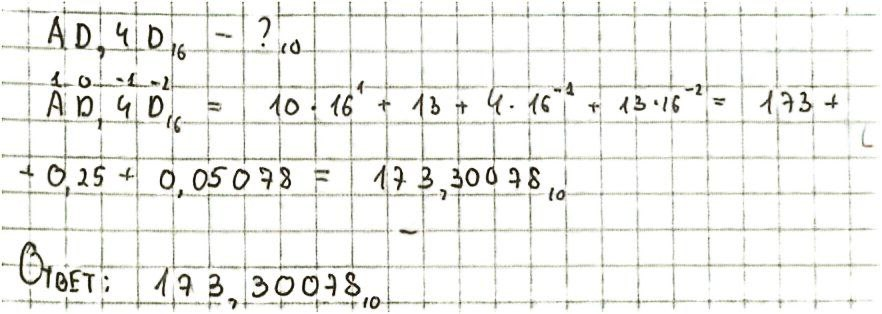 AD,4D₁₆ - ?₁₀
1 0 -1 -2
AD,4D₁₆ = 10·16¹ + 13 + 4·16⁻¹ + 13·16⁻² = 173 +
+ 0,25 + 0,05078 = 173,30078₁₀
Ответ: 173,30078₁₀